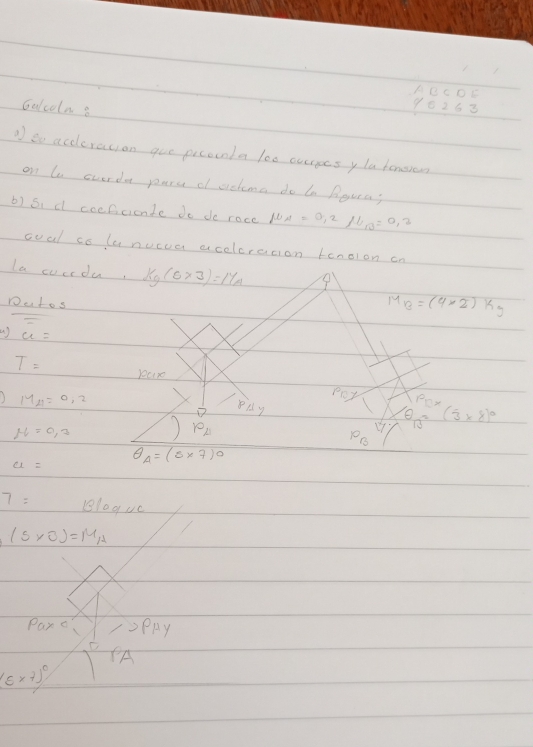 A B C D E
Calcula :
a) La aceleracion que presentan los cuerpos y la tension
en la cuerda para el sistema de la figura;
b) Si el coeficiende de de roce μA = 0,2 μB = 0,3
cual es la nueva aceleracion tension en
la cuerda , Kg (5x3)=MA
MB = (4x2) Kg
Datos
a =
T =
PAY
PA
PBY
PBX
PB
MA = 0,2
μ = 0,3
a =
T =
Bloque
(5x3)=MA
Pax
PAY
PA